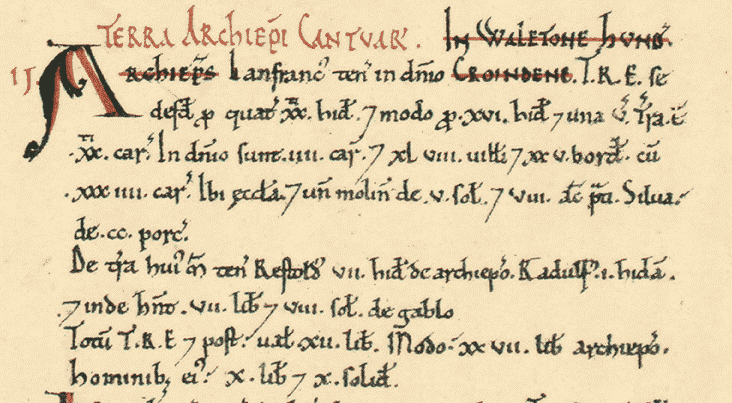 TERRA ARCHIEPI CANTVAR'. IN WALETONE HUND'.
IJ. ARCHIEPS Lanfranc' ten' in dnio CROINDENE. T.R.E. se
defd p quat xx. hid. 7 modo p. xvi. hid 7 una v'. Tra. e
.xx. car'. In dnio sunt .iiii. car'. 7 xl viii. uilli 7 xxv. bord. cu
.xxxiiii. car'. Ibi eccla. 7 un molin de .v. sol. 7 viii. ac pti. Silua.
de .cc. porc'.
De tra hui' M ten' Restold' vii. hid de archiepo. Radulf'. i. hida.
.7 inde hnt .vii. lib 7 viii. sol. de gablo
Totu T.R.E 7 post: ual. xii. lib. Modo: xxvii. lib archiepo.
hominib; ei': x. lib 7 x. solid.